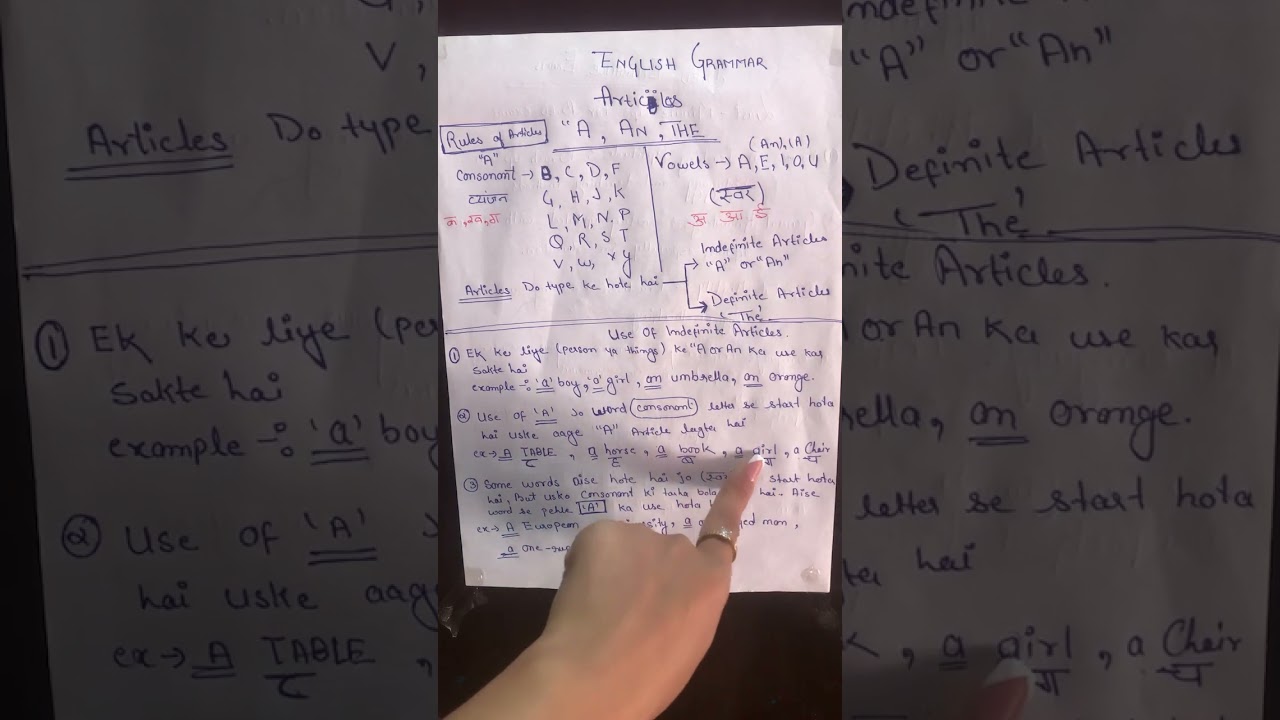 ENGLISH GRAMMAR
Articles
Rules of Articles "A, AN, THE
"A" (An),(A)
Consonant → B, C, D, F Vowels → A, E, I, O, U
व्यंजन G, H, J, K (स्वर)
क, ख, ग L, M, N, P अ आ ई
Q, R, S T
V, W, X Y
Indefinite Articles
"A" or "An"
Articles Do type ke hote hai
Definite Articles
'The'
Use Of Indefinite Articles.
① Ek ke liye (person ya things) ke "A or An Ka use kar
Sakte hai
example -: 'a' boy, 'a' girl, an umbrella, an orange.
② Use of 'A' Jo word (consonant) letter se start hota
hai uske aage "A" Article lagta hai
ex → A TABLE, a horse, a book, a girl, a Chair
ट ह ब ग च
③ Some words aise hote hai jo start hota
hai, But usko Consonant ki taraha hai. Aise
word se pehle 'A' ka use hota
ex → A European a man,
a one
V,
"A" or "An"
Articles Do type
Definite Articles
'The'
Articles.
① Ek ke liye
or An Ka use kar
Sakte hai
example -: 'a' boy
an orange.
② Use of 'A'
letter se start hota
hai uske
hai
ex → A TABLE,
ट
, a girl, a Chair
ग च